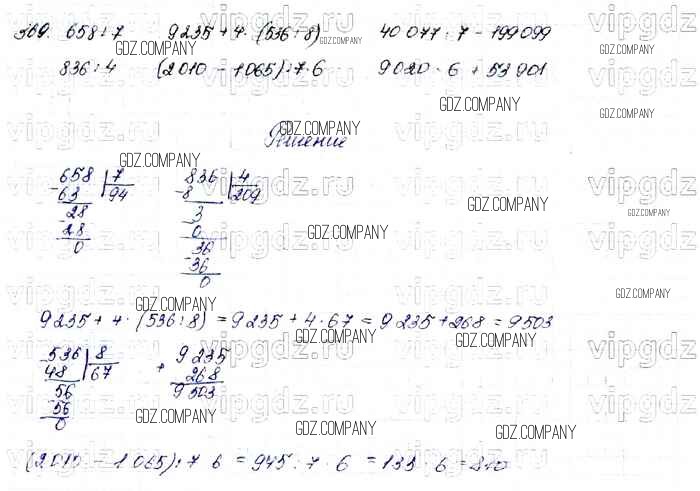 369. 658 : 7 9235 + 4 · (536 : 8) 40 077 · 7 – 199 099
836 : 4 (2 010 – 1 065) : 7 · 6 9 020 · 6 + 53 901
Решение
658 | 7 836 | 4
-63 | 94 -8 | 209
28 3
-28 -0
0 36
-36
0
9 235 + 4 · (536 : 8) = 9 235 + 4 · 67 = 9 235 + 268 = 9 503
536 | 8 9 235
-48 | 67 + 268
56 9 503
-56
0
(2 010 – 1 065) : 7 · 6 = 945 : 7 · 6 = 135 · 6 = 810
vipgdz.ru
GDZ.COMPANY